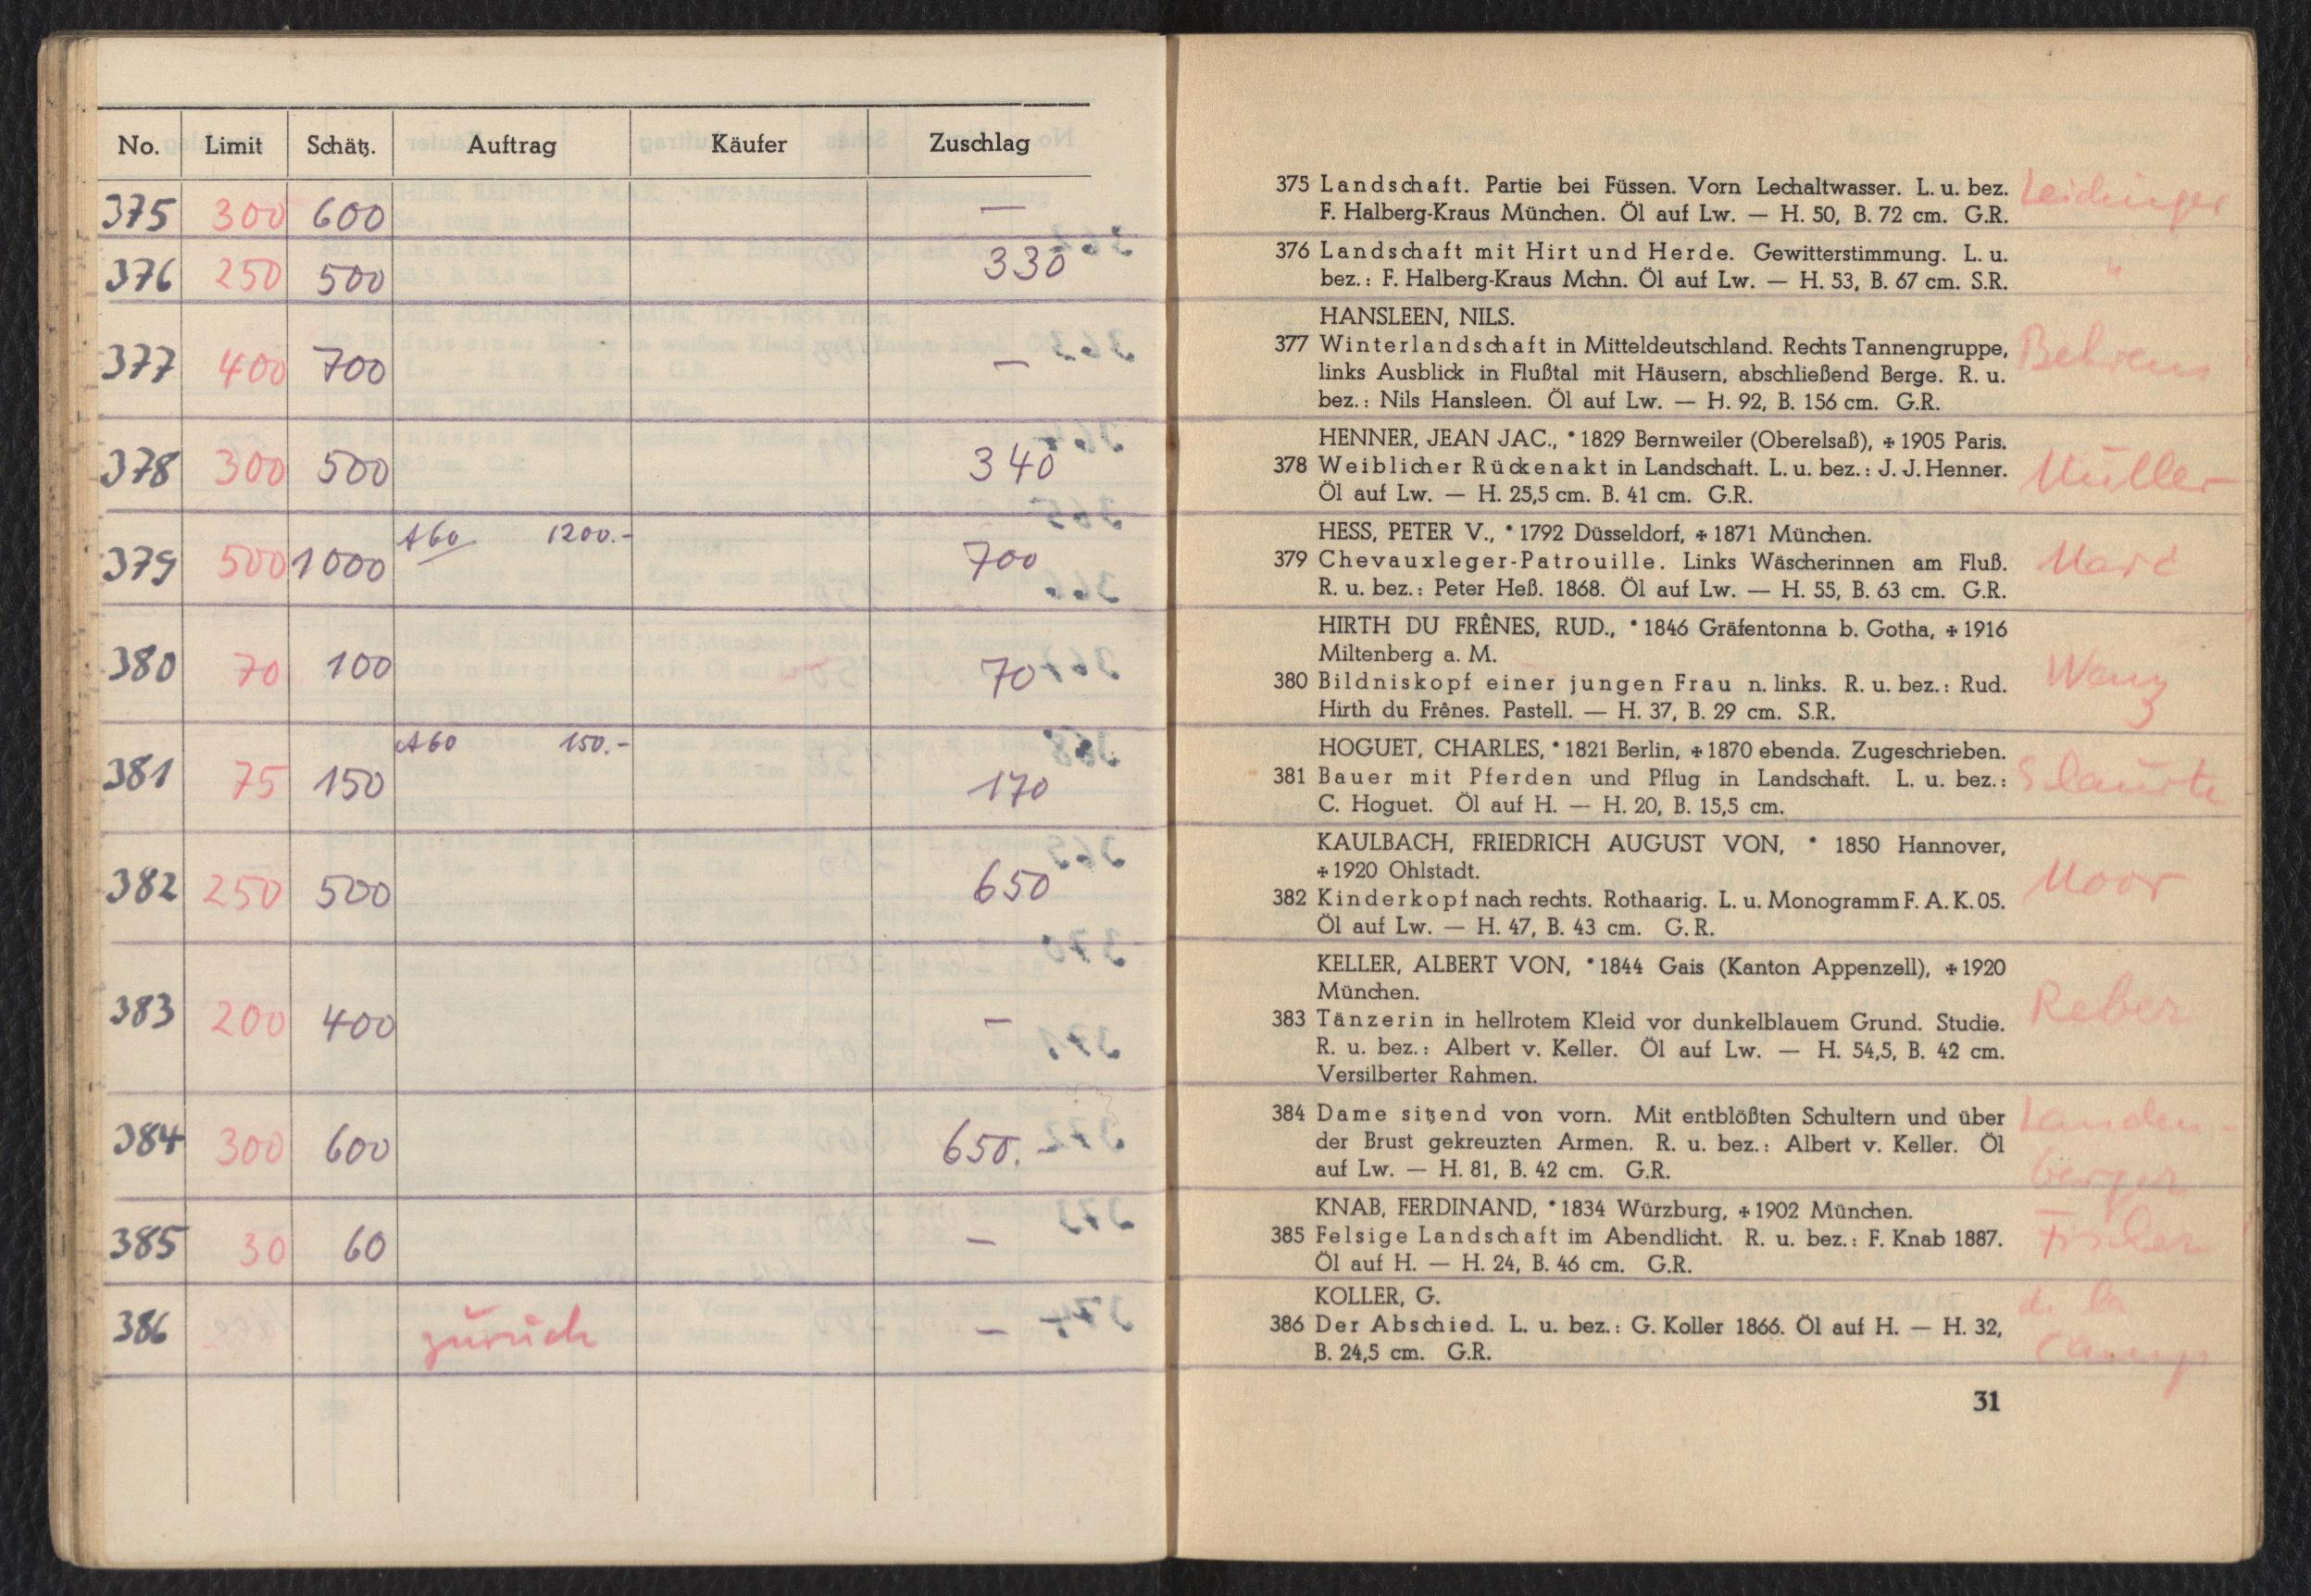 No. Limit Schätz. Auftrag Käufer Zuschlag
375 300 600 —
376 250 500 330
377 400 700 —
378 300 500 340
379 500 1000 A60 1200.- 700
380 70 100 70
381 75 150 A60 150.- 170
382 250 500 650
383 200 400 —
384 300 600 650.-
385 30 60 —
386 zurück —
375 Landschaft. Partie bei Füssen. Vorn Lechaltwasser. L. u. bez. Leidinger
F. Halberg-Kraus München. Öl auf Lw. — H. 50, B. 72 cm. G.R.
376 Landschaft mit Hirt und Herde. Gewitterstimmung. L. u. "
bez.: F. Halberg-Kraus Mchn. Öl auf Lw. — H. 53, B. 67 cm. S.R.
HANSLEEN, NILS.
377 Winterlandschaft in Mitteldeutschland. Rechts Tannengruppe, Behrens
links Ausblick in Flußtal mit Häusern, abschließend Berge. R. u.
bez.: Nils Hansleen. Öl auf Lw. — H. 92, B. 156 cm. G.R.
HENNER, JEAN JAC., * 1829 Bernweiler (Oberelsaß), ✢ 1905 Paris.
378 Weiblicher Rückenakt in Landschaft. L. u. bez.: J. J. Henner. Müller
Öl auf Lw. — H. 25,5 cm. B. 41 cm. G.R.
HESS, PETER V., * 1792 Düsseldorf, ✢ 1871 München.
379 Chevauxleger-Patrouille. Links Wäscherinnen am Fluß.
R. u. bez.: Peter Heß. 1868. Öl auf Lw. — H. 55, B. 63 cm. G.R.
HIRTH DU FRÊNES, RUD., * 1846 Gräfentonna b. Gotha, ✢ 1916
Miltenberg a. M.
380 Bildniskopf einer jungen Frau n. links. R. u. bez.: Rud. Wenz
Hirth du Frênes. Pastell. — H. 37, B. 29 cm. S.R.
HOGUET, CHARLES, * 1821 Berlin, ✢ 1870 ebenda. Zugeschrieben.
381 Bauer mit Pferden und Pflug in Landschaft. L. u. bez.:
C. Hoguet. Öl auf H. — H. 20, B. 15,5 cm.
KAULBACH, FRIEDRICH AUGUST VON, * 1850 Hannover,
✢ 1920 Ohlstadt.
382 Kinderkopf nach rechts. Rothaarig. L. u. Monogramm F. A. K. 05. Moor
Öl auf Lw. — H. 47, B. 43 cm. G. R.
KELLER, ALBERT VON, * 1844 Gais (Kanton Appenzell), ✢ 1920
München.
383 Tänzerin in hellrotem Kleid vor dunkelblauem Grund. Studie. Reber
R. u. bez.: Albert v. Keller. Öl auf Lw. — H. 54,5, B. 42 cm.
Versilberter Rahmen.
384 Dame sitzend von vorn. Mit entblößten Schultern und über Landen-
der Brust gekreuzten Armen. R. u. bez.: Albert v. Keller. Öl
auf Lw. — H. 81, B. 42 cm. G.R. berger
KNAB, FERDINAND, * 1834 Würzburg, ✢ 1902 München.
385 Felsige Landschaft im Abendlicht. R. u. bez.: F. Knab 1887. Fischer
Öl auf H. — H. 24, B. 46 cm. G.R.
KOLLER, G. de la
386 Der Abschied. L. u. bez.: G. Koller 1866. Öl auf H. — H. 32,
B. 24,5 cm. G.R. Camp
31